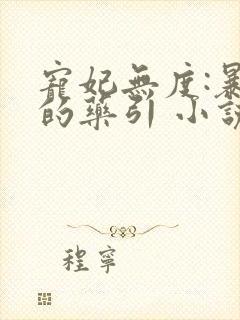 寵妃無度:暴
的藥引 小說
程寧